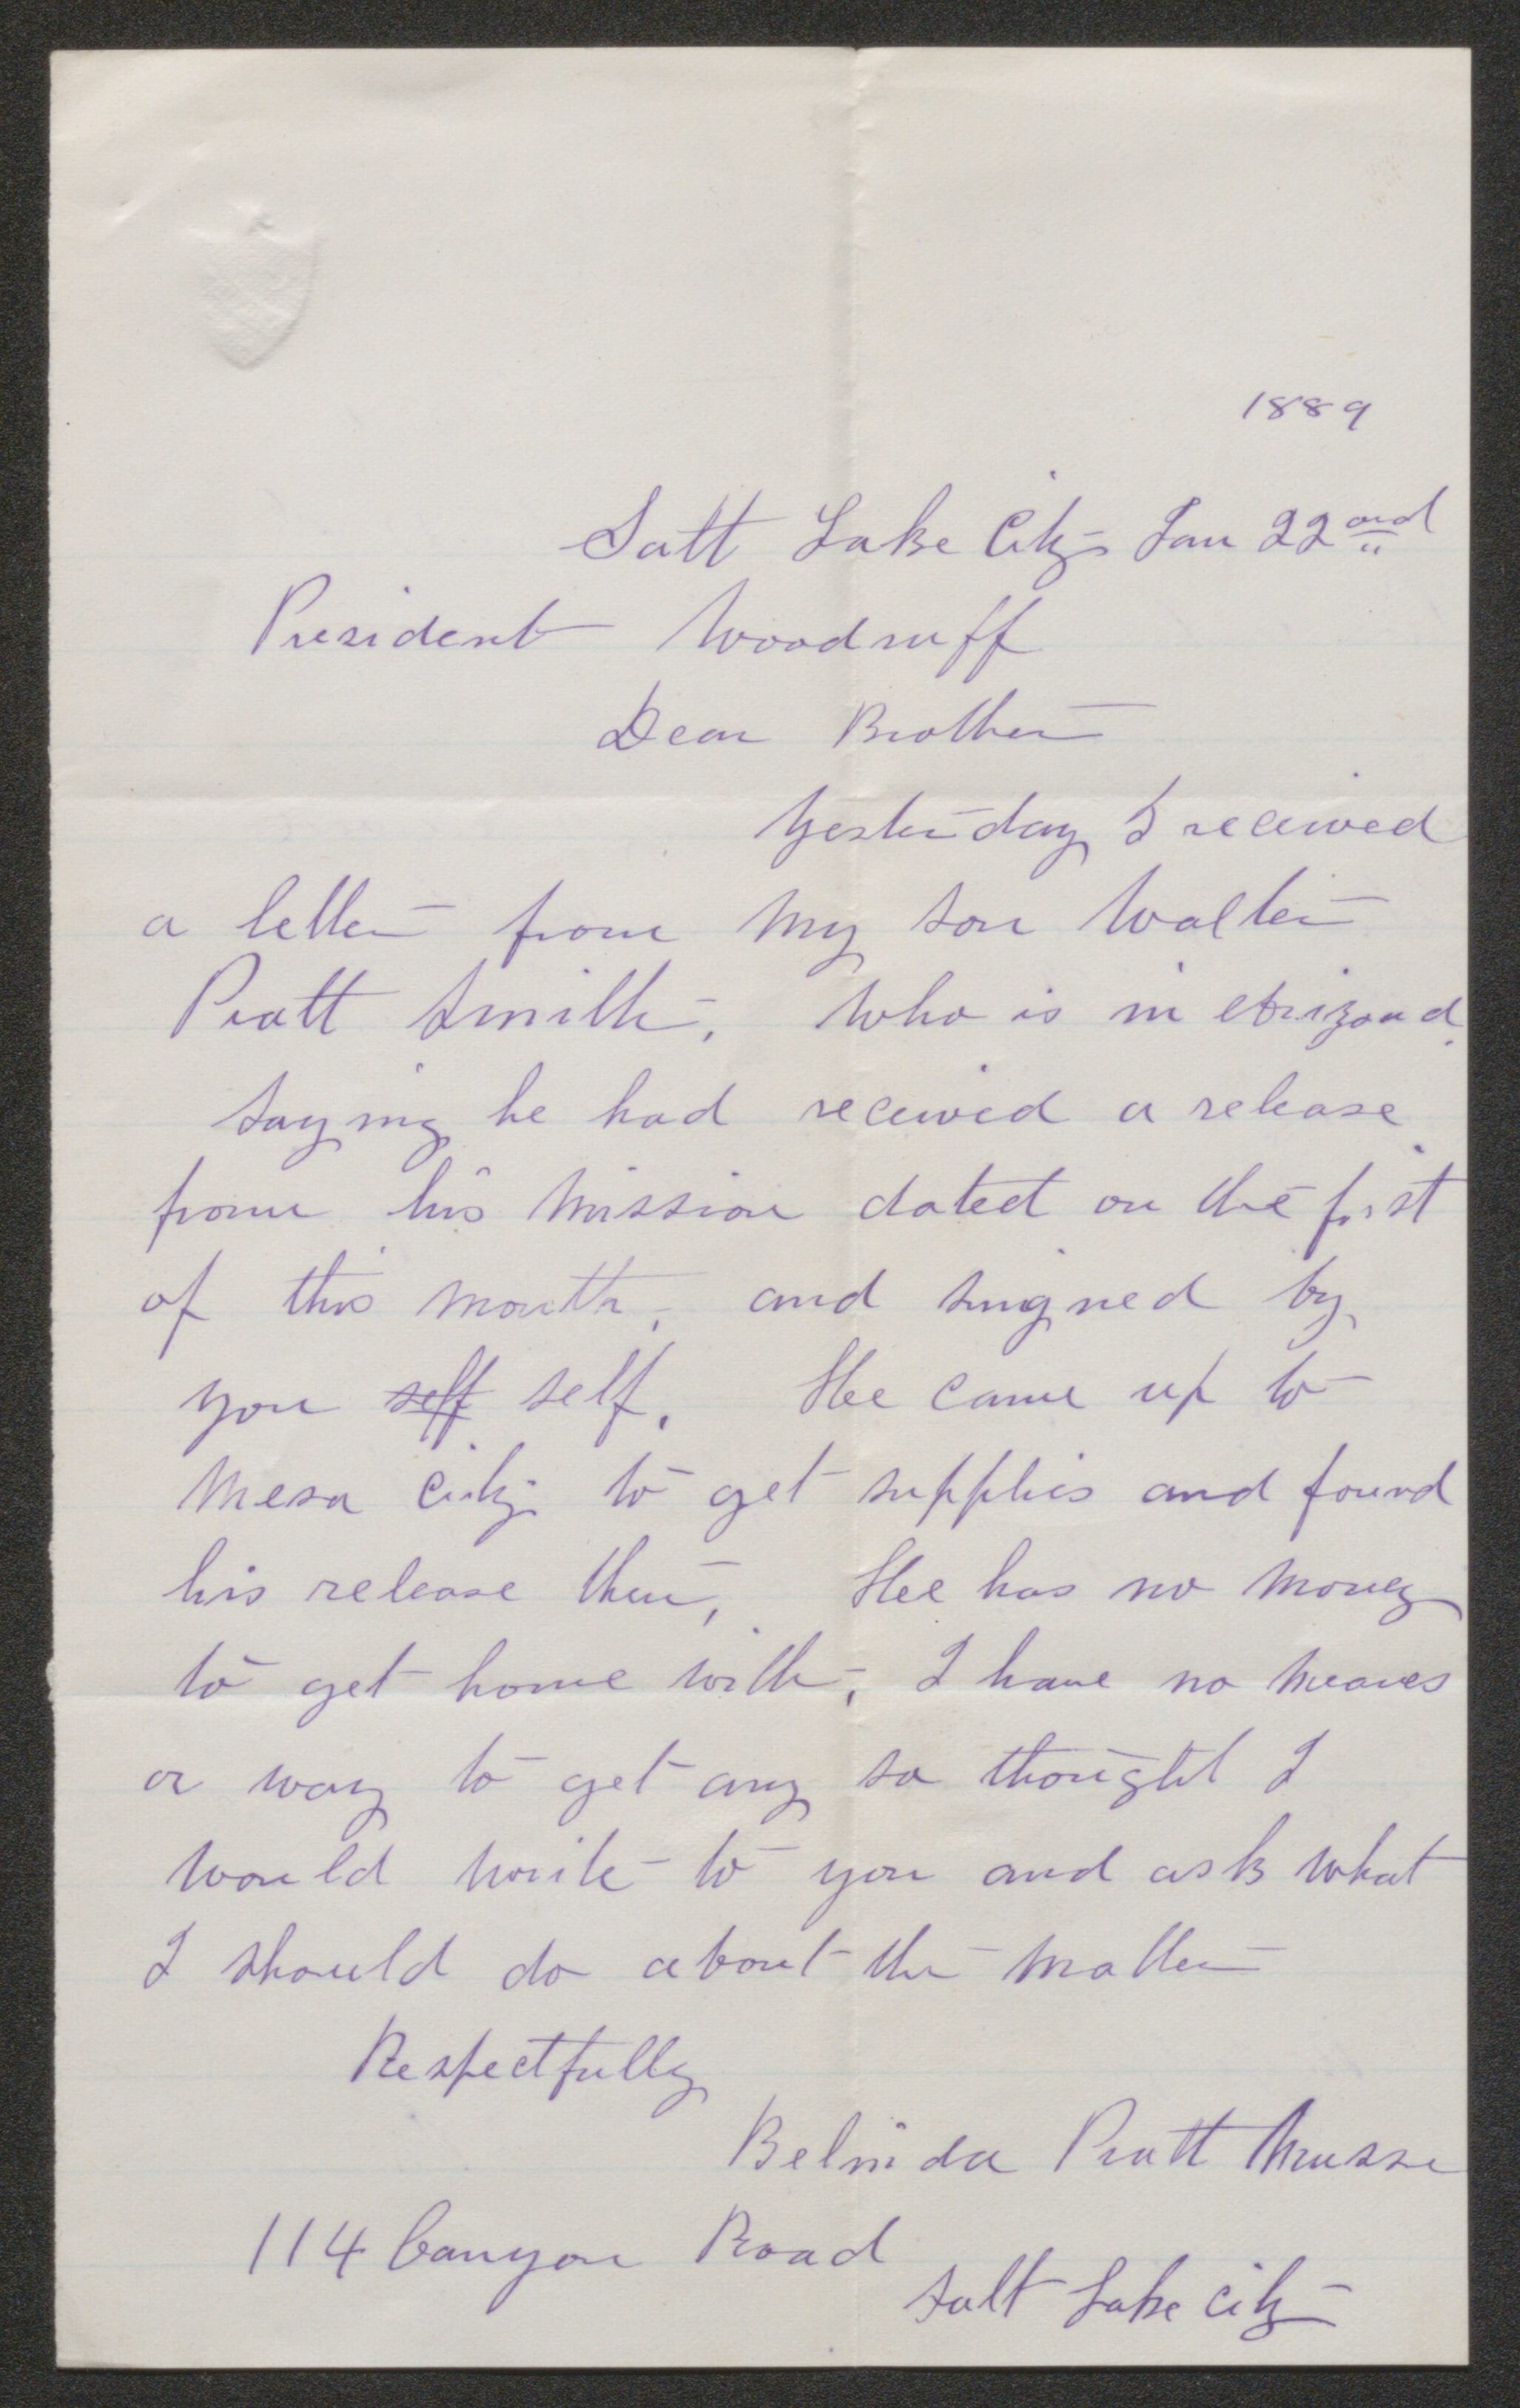 1889
Salt Lake City Jan 22nd
President Woodruff
Dear Brother
Yesterday I received
a letter from my son Walter
Pratt Smith, who is in Arizona
saying he had received a release
from his mission dated on the first
of this month, and singned by
you self self. Hee came up to
Mesa City to get supplies and found
his release there, Hee has no money
to get home with, I have no means
or way to get any so thought I
would write to you and ask what
I should do about the matter
Respectfully
Belinda Pratt Musser
114 Canyon Road
Salt Lake City